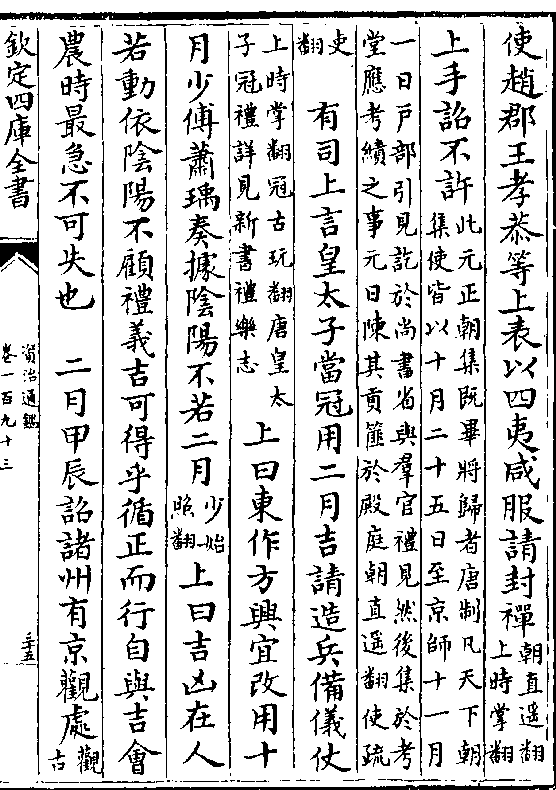 使趙郡王孝恭等上表以四夷咸服請封禪朝直遥翻上時掌翻
上手詔不許此元正朝集既畢將歸者唐制凡天下朝集使皆以十月二十五日至京師十一月
一日戸部引見訖於尚書省與羣官禮見然後集於考堂應考績之事元日陳其貢篚於殿庭朝直遥翻使疏
吏翻 有司上言皇太子當冠用二月吉請造兵備儀仗
上時掌翻冠古玩翻唐皇太子冠禮詳見新書禮樂志 上曰東作方興宜改用十
月少傅蕭瑀奏據陰陽不若二月少始照翻 上曰吉凶在人
若動依陰陽不顧禮義吉可得乎循正而行自與吉會
農時最急不可失也 二月甲辰詔諸州有京觀處觀古
欽定四庫全書
資治通鑑
卷一百九十三
三五